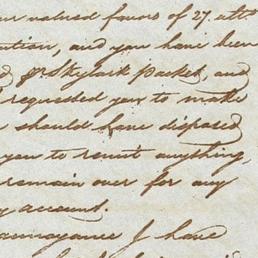 our valued favors of 27. ulto
ution, and you have been
p Skylark packet, and
requested you to make
should have disposed
you to remit anything,
remain over for any
y account.
annoyance I have